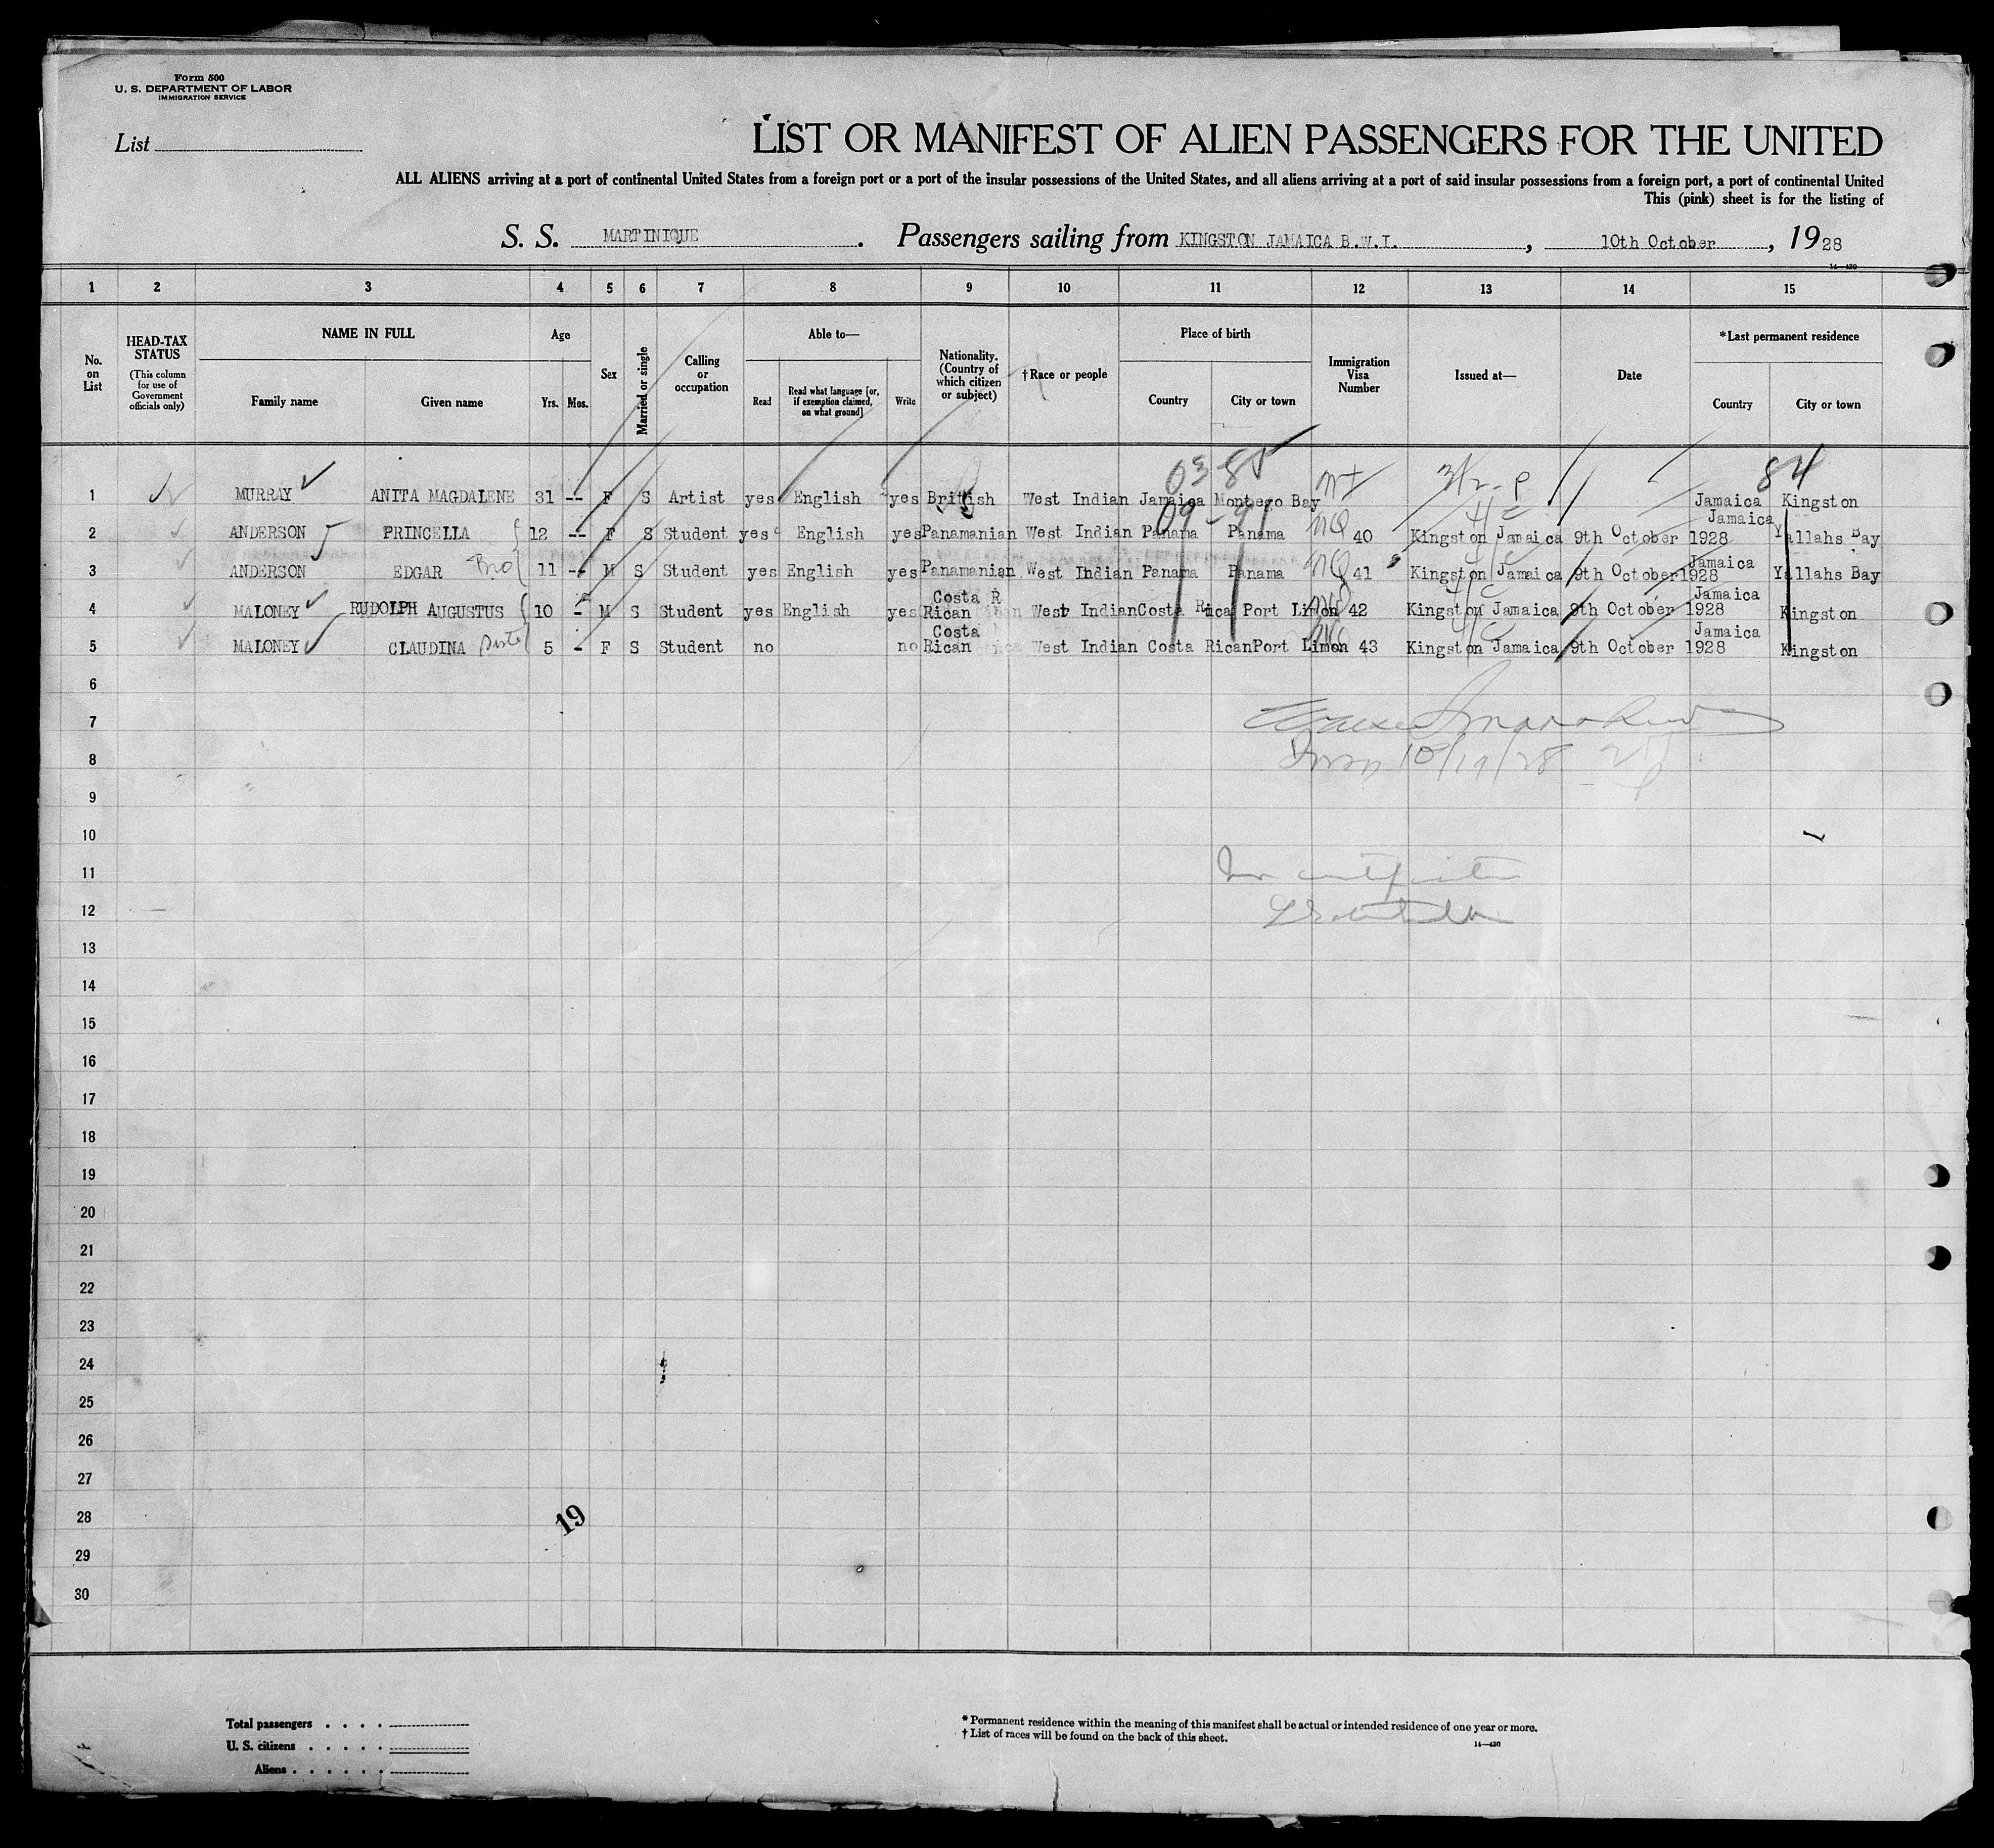 Form 500
U. S. DEPARTMENT OF LABOR
IMMIGRATION SERVICE
List
LIST OR MANIFEST OF ALIEN PASSENGERS FOR THE UNITED
ALL ALIENS arriving at a port of continental United States from a foreign port or a port of the insular possessions of the United States, and all aliens arriving at a port of said insular possessions from a foreign port, a port of continental United
This (pink) sheet is for the listing of
S. S. MARTINIQUE. Passengers sailing from KINGSTON JAMAICA B.W.I., 10th October, 1928
14—430
1 2 3 4 5 6 7 8 9 10 11 12 13 14 15
No. on List
HEAD-TAX STATUS
(This column for use of Government officials only)
NAME IN FULL
Family name Given name
Age
Yrs. Mos.
Sex
Married or single
Calling or occupation
Able to—
Read Read what language [or, if exemption claimed, on what ground] Write
Nationality. (Country of which citizen or subject)
†Race or people
Place of birth
Country City or town
Immigration Visa Number
Issued at—
Date
*Last permanent residence
Country City or town
03-85 84
1 MURRAY ANITA MAGDALENE 31 -- F S Artist yes English yes British West Indian Jamaica Montego Bay Jamaica Kingston
09-91
2 ANDERSON PRINCELLA 12 -- F S Student yes English yes Panamanian West Indian Panama Panama NQ 40 Kingston Jamaica 9th October 1928 Jamaica Yallahs Bay
3 ANDERSON EDGAR Bro 11 -- M S Student yes English yes Panamanian West Indian Panama Panama NQ 41 Kingston Jamaica 9th October 1928 Jamaica Yallahs Bay
4 MALONEY RUDOLPH AUGUSTUS 10 - M S Student yes English yes Costa Rican West Indian Costa Rica Port Limon NQ 42 Kingston Jamaica 9th October 1928 Jamaica Kingston
5 MALONEY CLAUDINA Sister 5 - F S Student no no Costa Rican West Indian Costa Rican Port Limon NQ 43 Kingston Jamaica 9th October 1928 Jamaica Kingston
6
7
8 10/19/28
9
10
11
12
13
14
15
16
17
18
19
20
21
22
23
24
25
26
27
28
19
29
30
Total passengers . . . .
U. S. citizens . . . . .
Aliens . . . . . .
* Permanent residence within the meaning of this manifest shall be actual or intended residence of one year or more.
† List of races will be found on the back of this sheet.
14—430